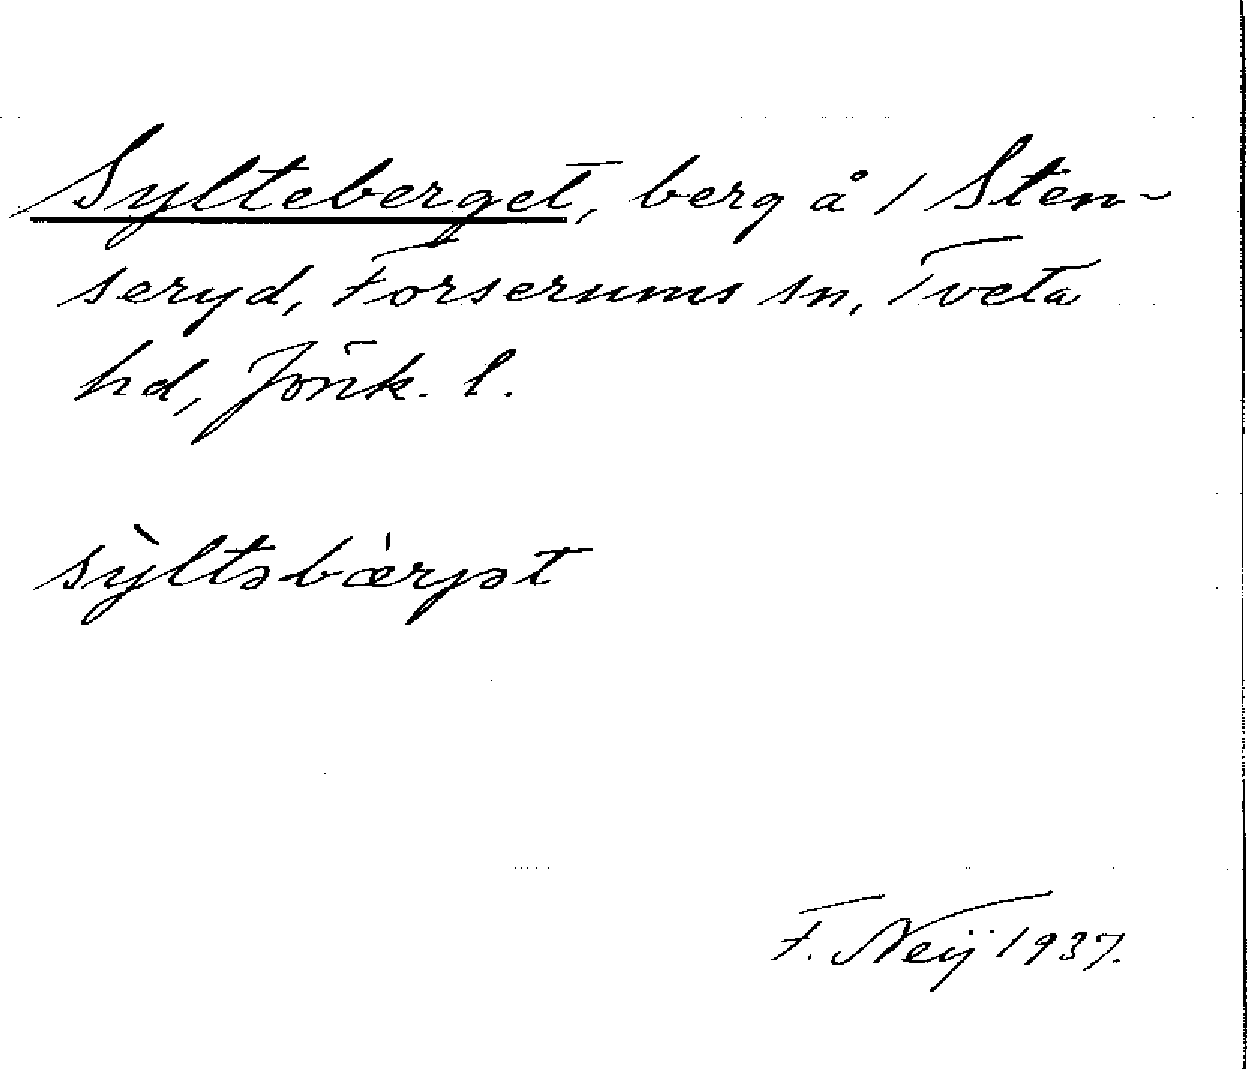 Sylteberget, berg å 1 Sten-
seryd, Forserums sn, Tveta
hd, Jönk. l.
sỳltəbæ̀rjət
F. Neij 1937.